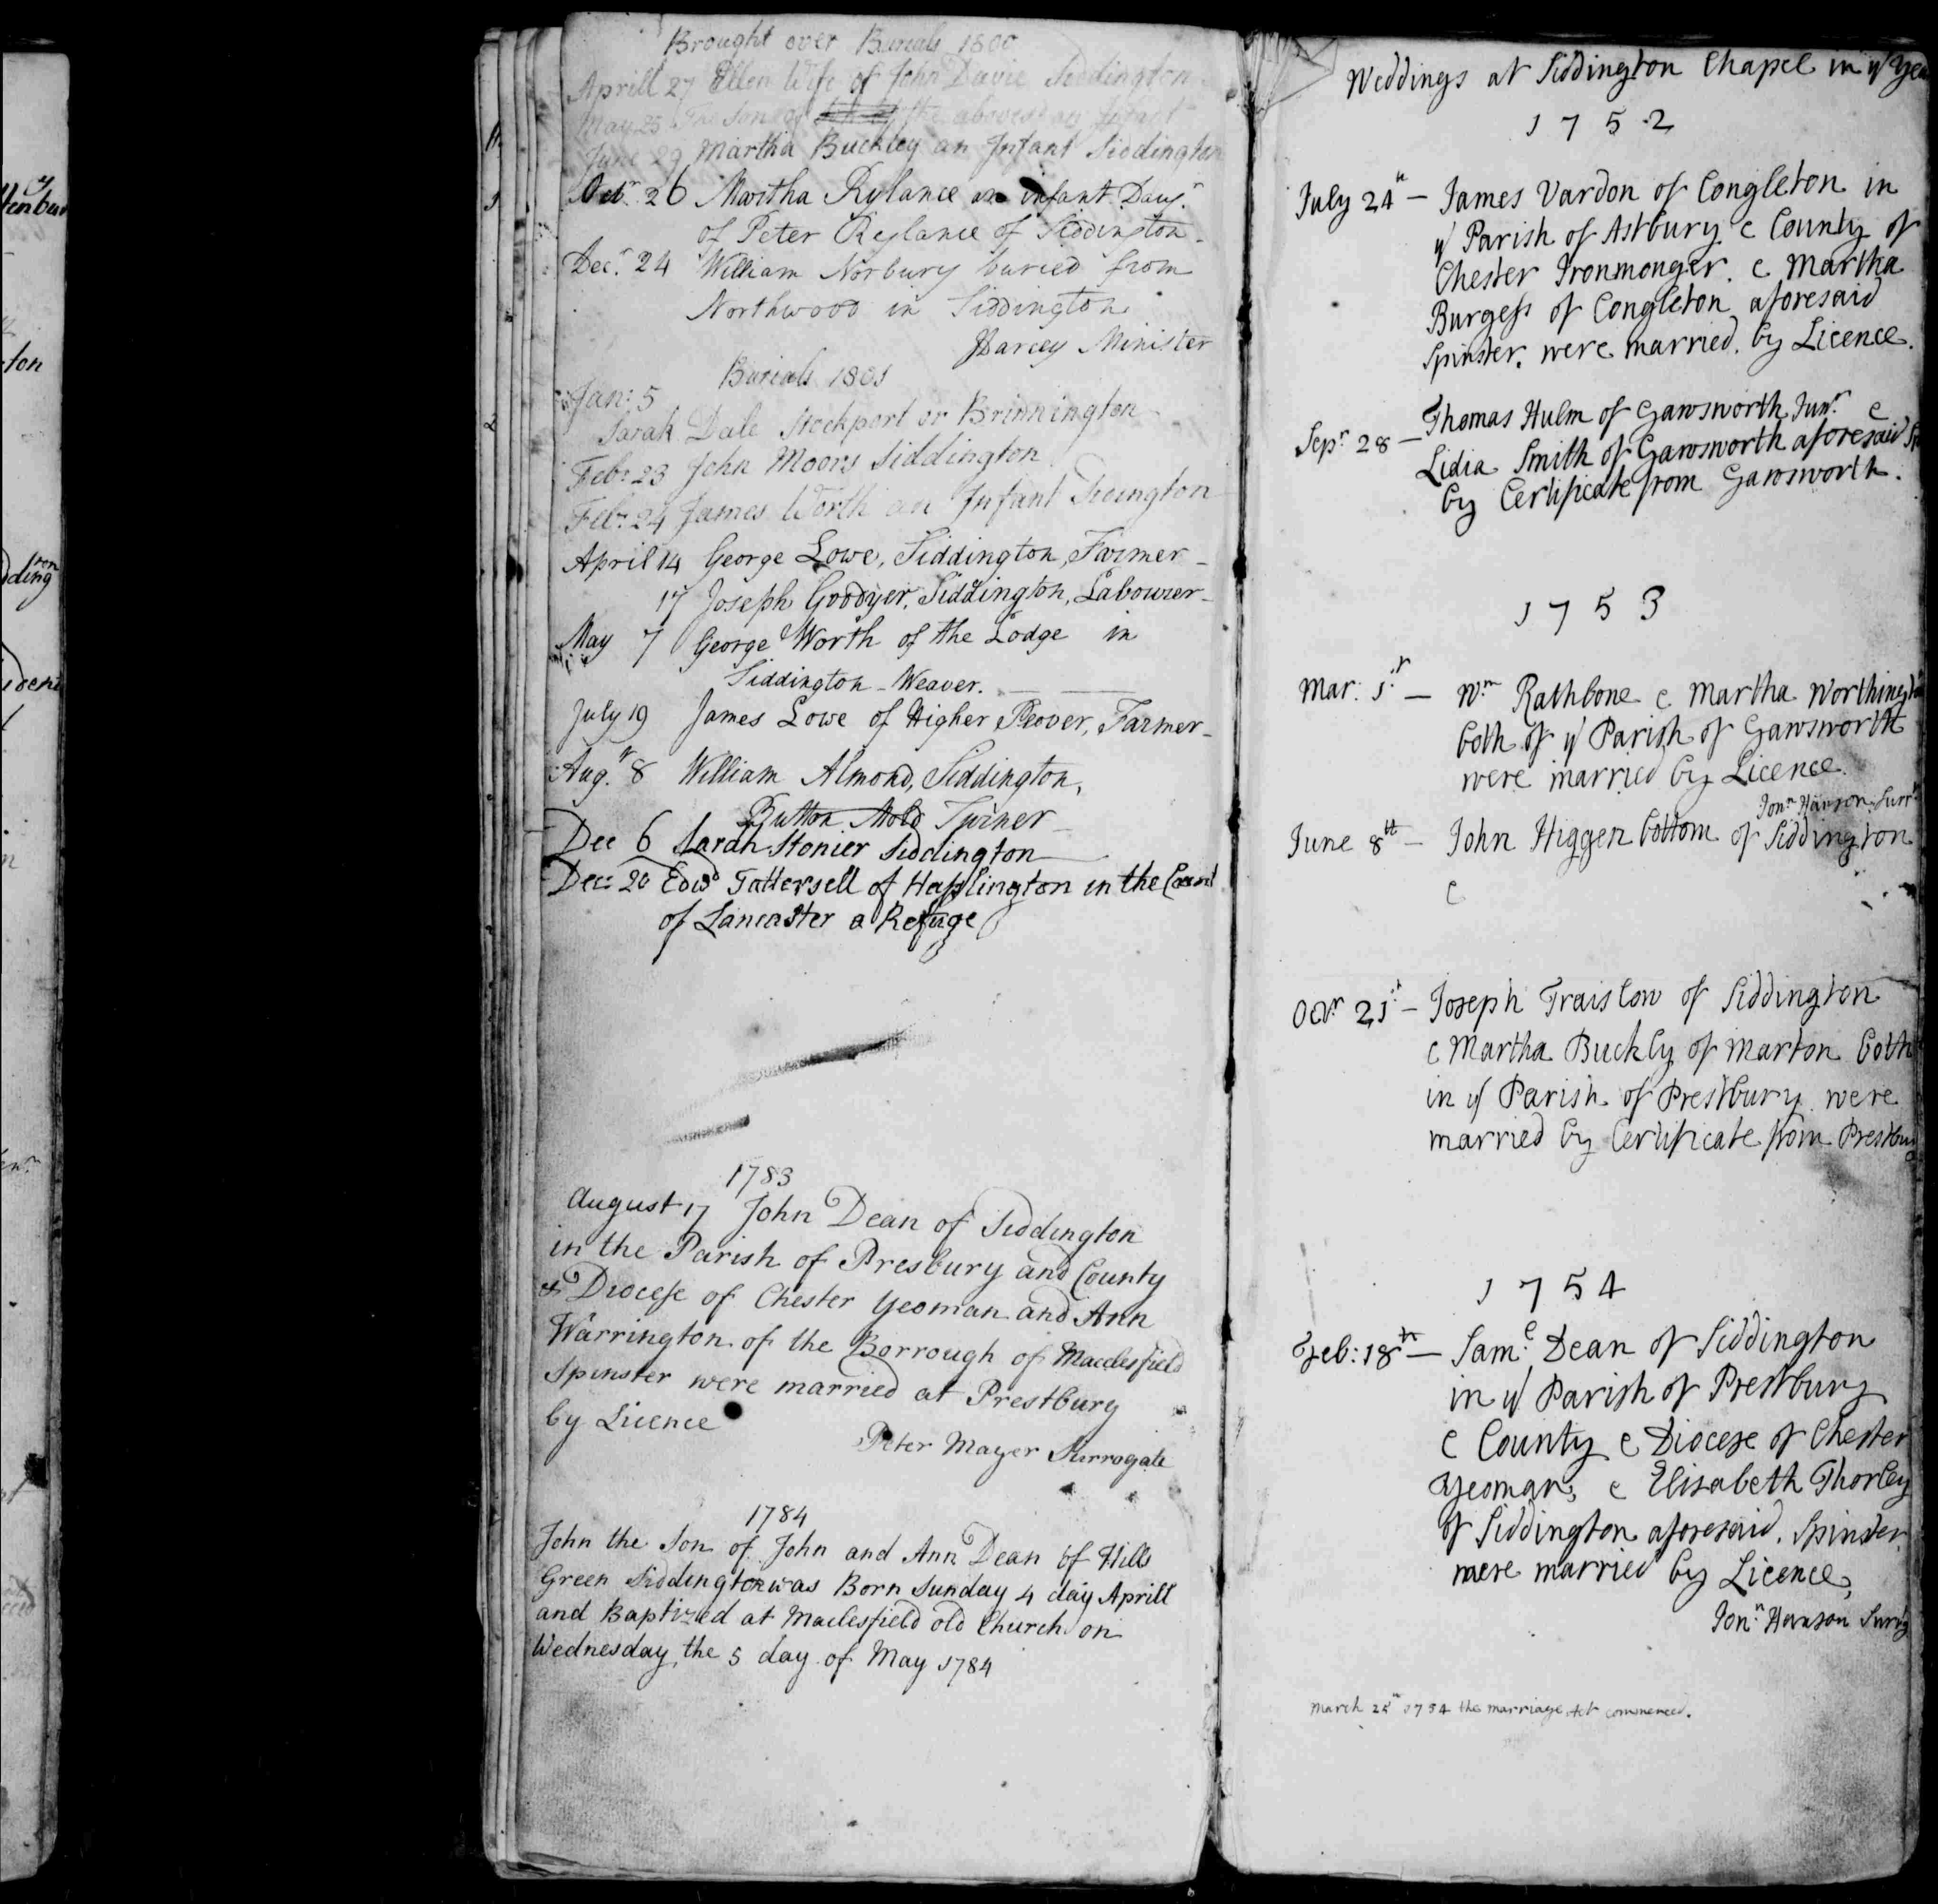 Brought over Burials 1800
Aprill 27 Ellen Wife of John Davie Siddington
May 25 The Son of the above an Infant
June 29 Martha Buckley an Infant Siddington
Octr. 26 Martha Rylance an infant Daugr.
of Peter Rylance of Siddington.
Decr. 24 William Norbury buried from
Northwood in Siddington
Minister
Burials 1801
Jan: 5
Sarah Dale Stockport or Brinnington
Feb: 23 John Moors Siddington
Feb: 24 James Worth an Infant Siddington
April 14 George Lowe, Siddington, Farmer
17 Joseph Goodyer, Siddington, Labourer
May 7 George Worth of the Lodge in
Siddington - Weaver.
July 19 James Lowe of Higher Peover, Farmer
Aug. 8 William Almond, Siddington,
Button Mold Turner
Dec 6 Sarah Stonier Siddington
Dec: 20 Edwd Tattersell of Haslington in the
of Lancaster a Refuge
1783
August 17 John Dean of Siddington
in the Parish of Presbury and County
& Diocese of Chester Yeoman and Ann
Warrington of the Borrough of Macclesfield
Spinster were married at Prestbury
by Licence
Peter Mayer Surrogate
1784
John the Son of John and Ann Dean of Hills
Green Siddington was Born Sunday 4 day Aprill
and Baptized at Maclesfield old Church on
Wednesday the 5 day of May 1784
Weddings at Siddington Chapel in ye Year
1752
July 24th — James Vardon of Congleton in
ye Parish of Astbury & County of
Chester Ironmonger. & Martha
Burgess of Congleton aforesaid
Spinster. were married. by Licence.
Sepr 28 — Thomas Hulm of Gawsworth Junr. &
Lidia Smith of Gawsworth aforesaid
by Certificate from Gawsworth.
1753
Mar: 1st — Wm Rathbone & Martha Worthington
both of ye Parish of Gawsworth
were married by Licence.
Jonn Hanson Surr
June 8th — John Higgenbottom of Siddington
&
Octr 21st — Joseph Traislow of Siddington
& Martha Buckly of Marton both
in ye Parish of Prestbury were
married by Certificate from Prestbury
1754
Feb: 18th — Saml Dean of Siddington
in ye Parish of Prestbury
& County & Diocese of Chester
Yeoman, & Elisabeth Thorley
of Siddington aforesaid. Spinster.
were married by Licence,
Jonn Hanson Surrg
March 25th 1754 the marriage Act commenced.